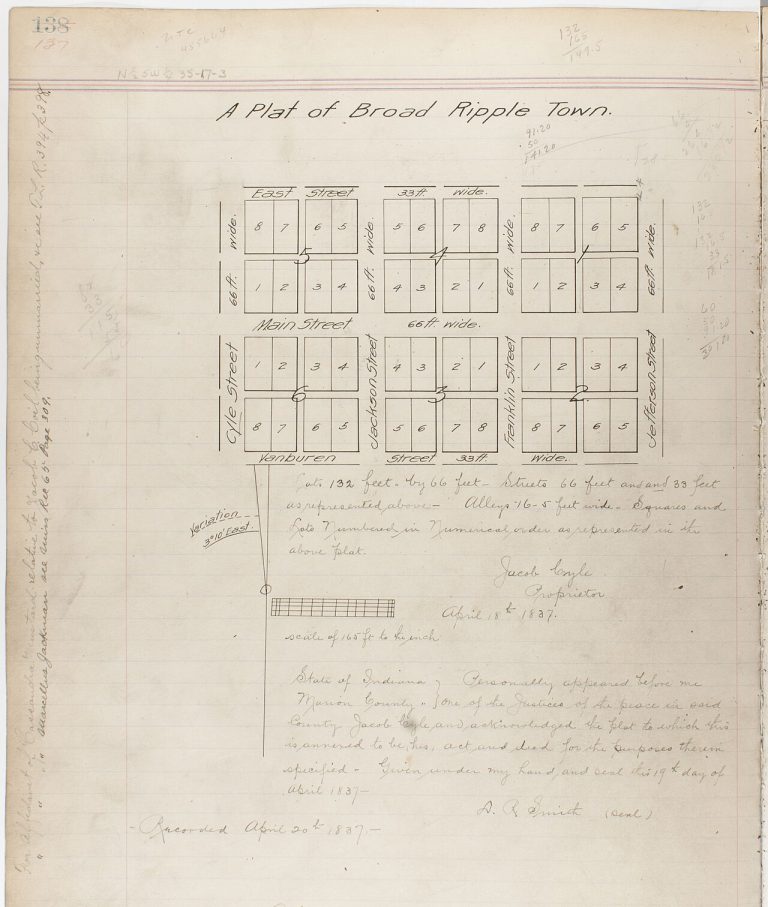 138
137
N ½ SW ¼ 35-17-3
132
165
149.5
A Plat of Broad Ripple Town.
91.20
50
141.20
East Street 33 ft. wide.
8 7 6 5 5 6 7 8 8 7 6 5
wide. wide. wide. wide.
5 4 1
66 ft. 66 ft. 66 ft. 66 ft.
1 2 3 4 4 3 2 1 1 2 3 4
Main Street 66 ft. wide.
1 2 3 4 4 3 2 1 1 2 3 4
Cyle Street Jackson Street Franklin Street Jefferson Street
6 3 2
8 7 6 5 5 6 7 8 8 7 6 5
Vanburen Street 33 ft. Wide.
Lots 132 feet - by 66 feet - Streets 66 feet and and 33 feet
as represented above - Alleys 16-5 feet wide - Squares and
Lots Numbered in Numerical order as represented in the
above plat.
Variation
3°10' East.
Jacob Coyle
Proprietor
April 18th 1837.
scale of 165 ft to the inch
State of Indiana } Personally appeared before me
Marion County " } one of the Justices of the peace in said
County Jacob Coyle, and, acknowledged the plat to which this
is annexed to be, his, act, and deed for the purposes therein
specified - Given under my hand, and seal this 19th day of
April 1837-
A. R. Smith (seal)
- Recorded April 20th 1837.-
For Affidavit of Cassandra and relative to Jacob C Coil being unmarried, see
" " " Marcellus Jackman see Misc Rec 65 Page 309.